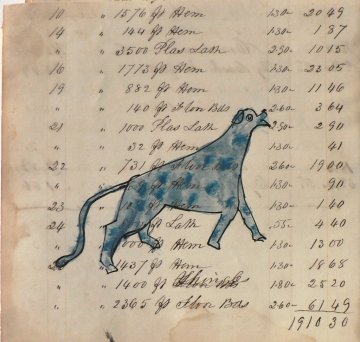 10 " 1576 ft Hem 130- 20 49
14 " 144 ft Hem 130- 1 87
" " 3500 Plas Lath 290- 10 15
16 " 1773 ft Hem 130- 23 05
19 " 882 ft Hem 130- 11 46
" " 140 ft Flor Bds 260- 3 64
21 " 1000 Plas Lath 290- 2 90
" " 32 ft Hem 130- 41
22 " 731 ft Flor 260- 19 00
" " Hem 130- 90
23 " Hem 130- 1 40
24 ft Lath 55- 4 40
" " 000 ft Hem 130- 13 00
" 1437 ft Hem 130- 18 68
" " 1400 ft 180- 25 20
" " 2365 ft Flor Bds 260- 61 49
1910 30